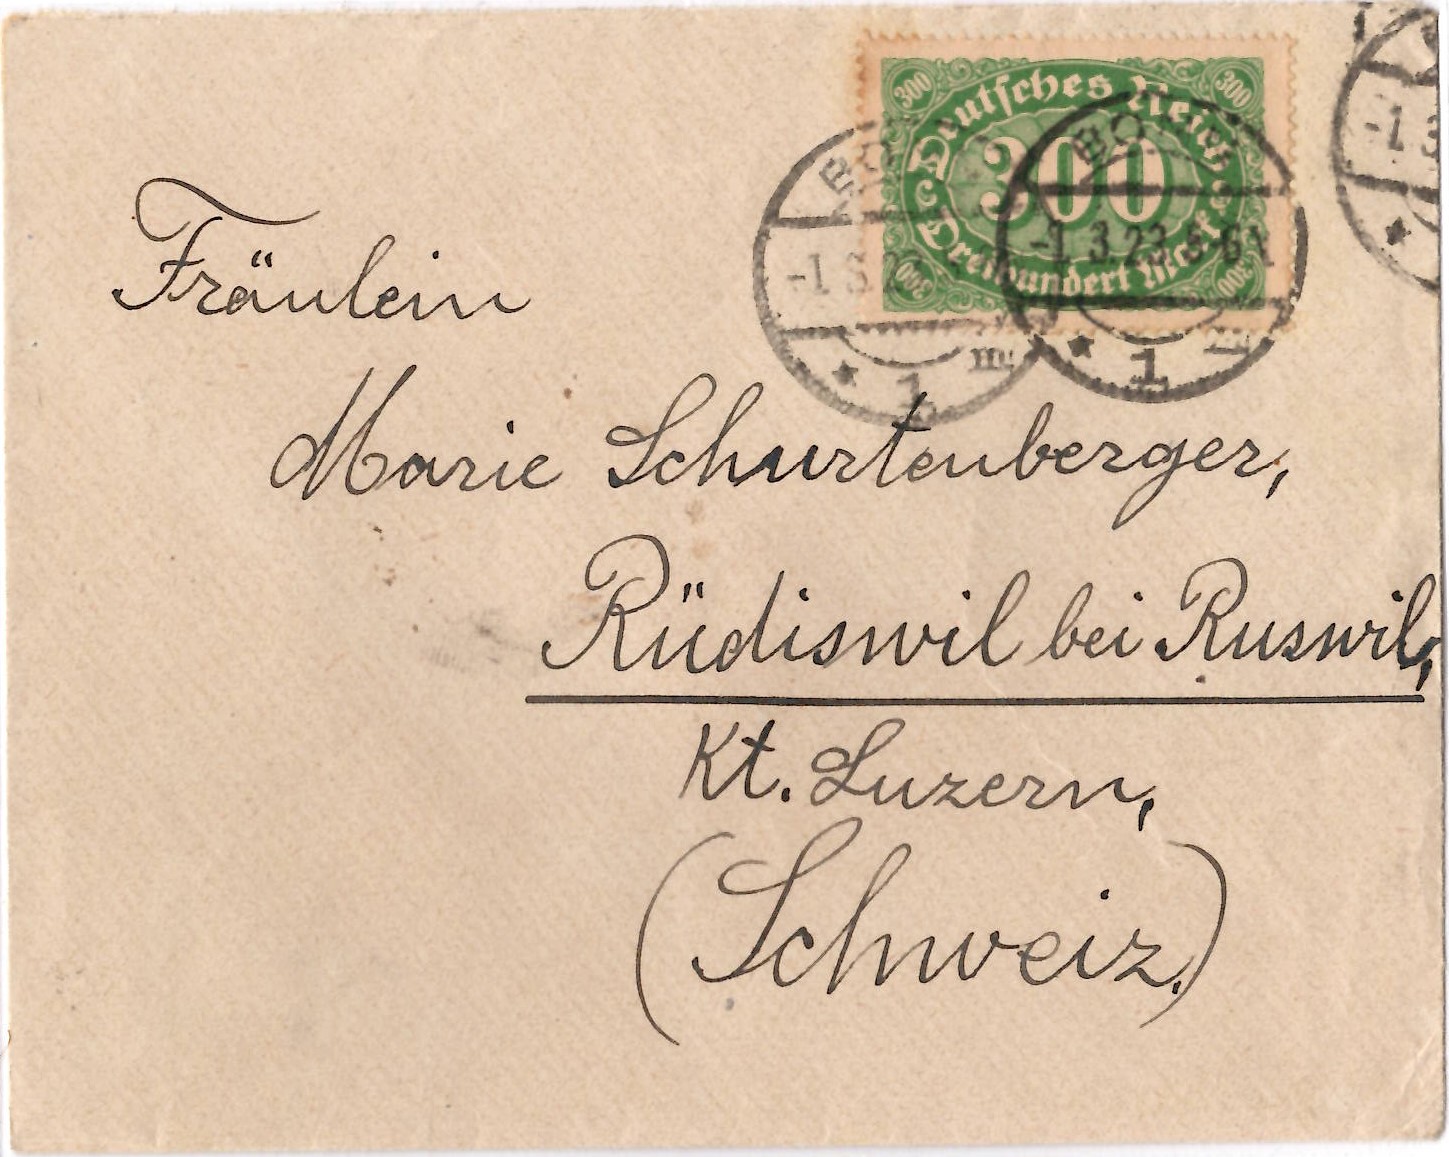 300 Deutsches Reich 300
300
300 Dreihundert Mark 300
-1.3.23.5-6
1
Fräulein
Marie Schurtenberger,
Rüdiswil bei Ruswil,
Kt. Luzern,
(Schweiz.)